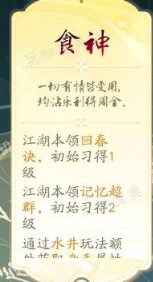 食神
一切有情皆受用,
均沾乐利得周全。
江湖本领回春
诀，初始习得1
级
江湖本领记忆超
群，初始习得2
级
通过水井玩法额